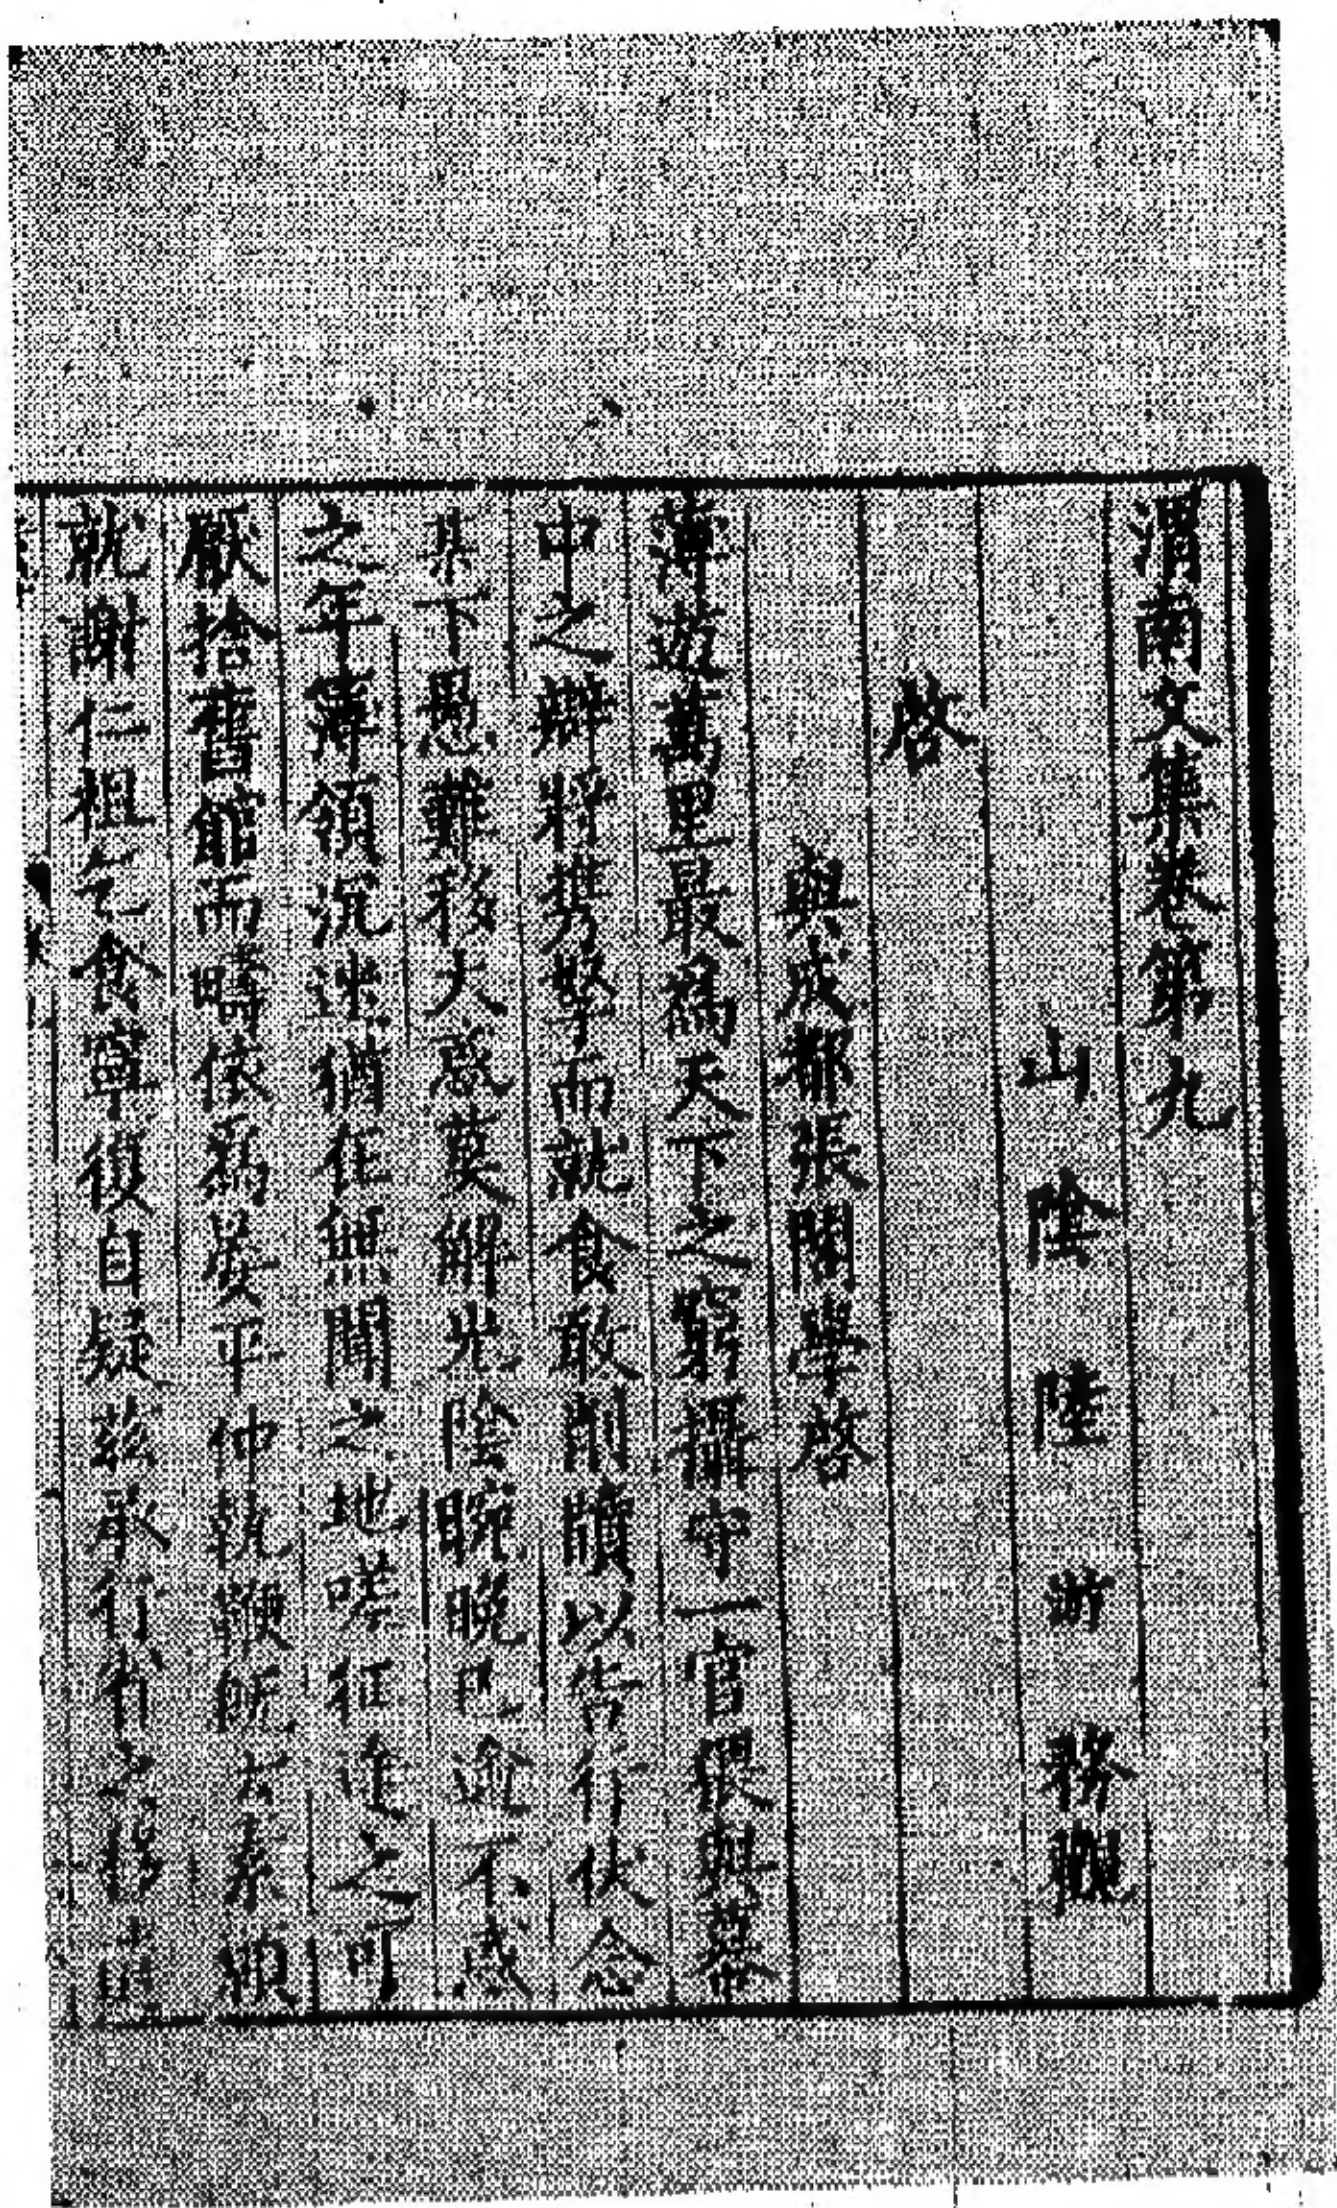 渭南文集卷第九
山陰陸游務觀
啓
與成都張閣學啓
薄遊萬里最爲天下之窮攝守一官猥與幕
中之辟將攜孥而就食敢削牘以告行伏念
某下愚難移大惑莫解光陰晼晚已逾不惑
之年簿領沉迷猶在無聞之地嗟征途之可
厭捨舊館而疇依爲晏平仲執鞭旣云素願
就謝仁祖乞食寧復自疑兹承行省之移